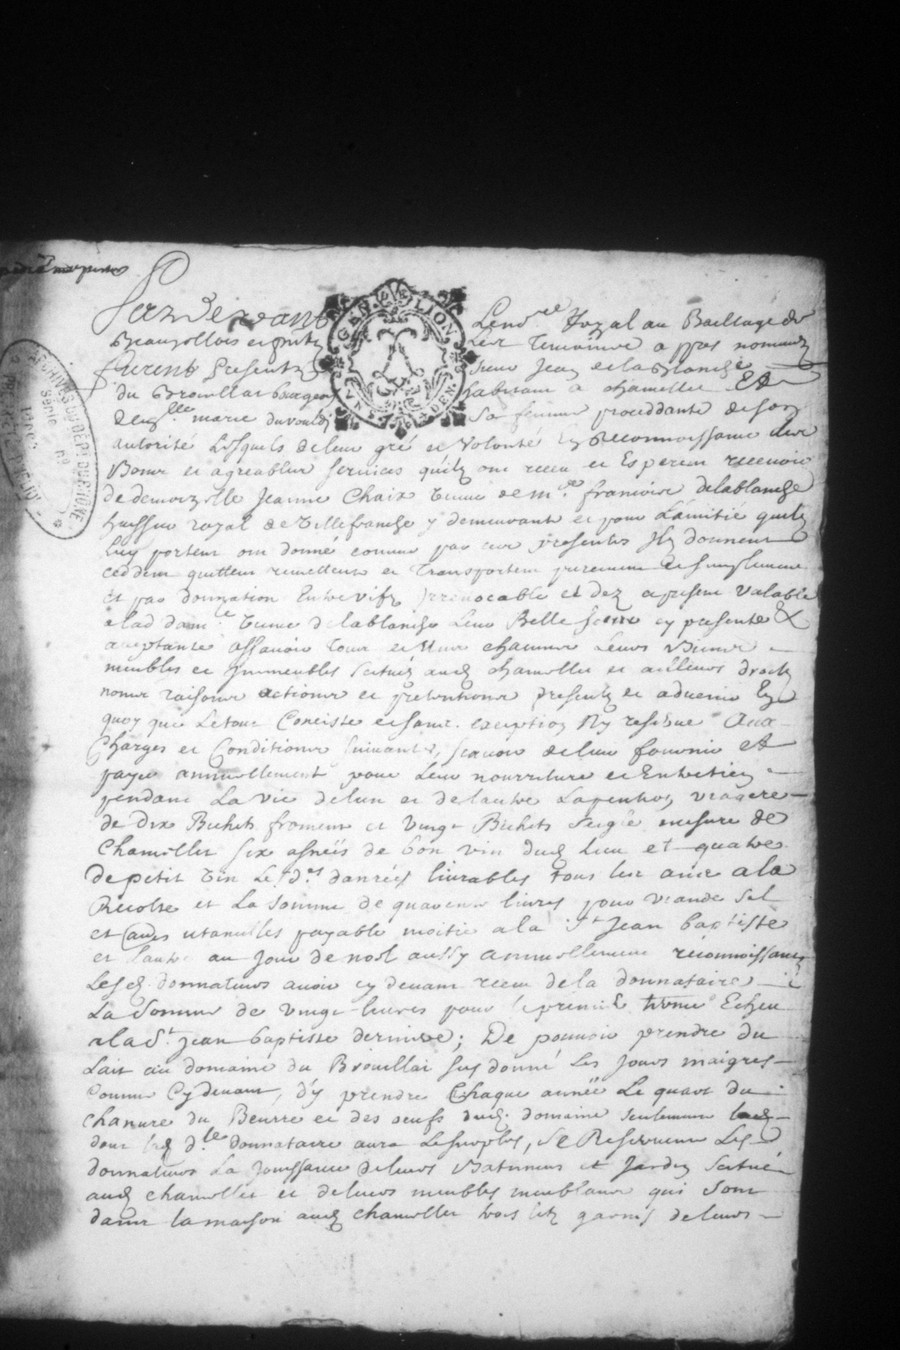 Pardevant Le no.re Royal au Bailliage de
Beaujollois et
furent Presents sieur Jean de la blanche
du Brouillat bourgeois habitant a chamellet Et
dem.lle marie sa femme proceddante de son
autorité Lesquels de leur gré et volonté En Reconnoissance des
Bons et agreables services quils ont receu et Esperent recevoir
de demoiz.lle Jeanne Chaix veuve de m.re francois delablanche
huissier royal de villefranche y demeurante et pour L'amitié quils
luy portent ont donné comme par ces presentes Ils donnent
ceddent quittent remettent et transportent purement et simplement
Et par donnation Entrevifs Irrevocable et dez a present valable
a lad dam.lle veuve delablanche Leur Belle soeur cy presente &
acceptante assavoir tous et Uns chacuns Leurs Biens
meubles et Immeubles scitués aud chamellet et ailleurs droits
noms raisons actions et pretentions presents et advenir En
quoy que Le tout Consiste et sans exception Ny reserve Aux
Charges et Conditions suivantes, scavoir de leur fournir et
payer annuellement pour Leur nourriture et Entretien
pendant La vie delun et de lautre La pention viagere
de dix Bichets froment et vingt Bichets seigle mesure de
Chamellet six asnées de bon vin dud Lieu et quatre
de petit vin Les d.es danrées livrables tous les ans a la
Recolte et La somme de quarente livres pour viande sel
et utancilles payable moitié a la S.t Jean baptiste
et lautre au jour de noel aussy annuellement reconnoissants
Lesd. donnateurs avoir cy devant receu de la donnataire
La somme de vingt livres pour le premie terme Echeu
a la S.t jean baptisse derniere; De pouvoir prendre du
Lait au domaine du Brouillat sus donné Les Jours maigres
comme Cy devant, d'y prendre Chaque année Le quart du
chanvre du Beurre et des oeufs dud. domaine seulement
dont lad d.lle donnataire aura Le surplus, se Reservent Les d
donnateurs La jouissance de leurs Batiments et Jardin scitués
aud chamellet et de leurs meubles meublants qui sont
dans la maison aud chamellet trois lits garnis de leurs